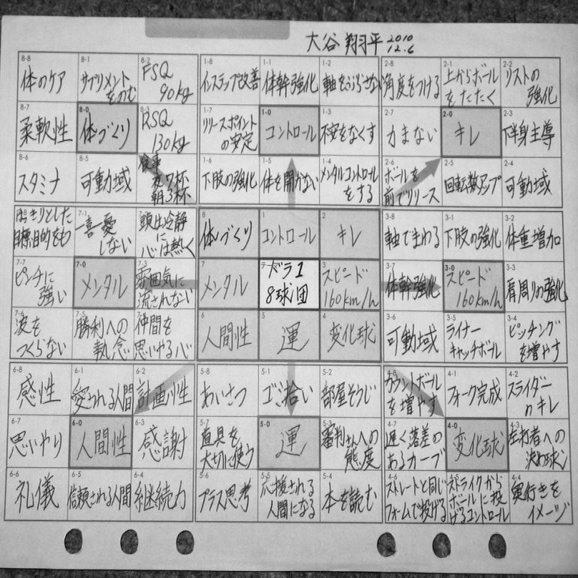 大谷 翔平
2010
12.6
8-8
体のケア
8-1
サプリメント
をのむ
8-2
FSQ
90kg
1-8
インステップ改善
1-1
体幹強化
1-2
軸をぶらさない
2-8
角度をつける
2-1
上からボール
をたたく
2-2
リストの
強化
8-7
柔軟性
8-0
体づくり
8-3
RSQ
130kg
1-7
リリースポイント
の安定
1-0
コントロール
1-3
不安をなくす
2-7
力まない
2-0
キレ
2-3
下半身主導
8-6
スタミナ
8-5
可動域
食事
夜7杯
朝3杯
1-6
下肢の強化
1-5
体を開かない
1-4
メンタルコントロール
をする
2-6
ボールを
前でリリース
2-5
回転数アップ
2-4
可動域
はっきりとした
目標、目的をもつ
7-1
一喜一憂
しない
頭は冷静
に
心は熱く
8
体づくり
1
コントロール
2
キレ
3-8
軸でまわる
3-1
下肢の強化
3-2
体重増加
7-7
ピンチに
強い
7-0
メンタル
7-3
雰囲気に
流されない
7
メンタル
ドラ1
8球団
3
スピード
160km/h
3-7
体幹強化
3-0
スピード
160km/h
3-3
肩周りの強化
7-6
波を
つくらない
7-5
勝利への
執念
7-4
仲間を
思いやる心
6
人間性
5
運
4
変化球
3-6
可動域
3-5
ライナー
キャッチボール
3-4
ピッチング
を増やす
6-8
感性
6-1
愛される人間
6-2
計画性
5-8
あいさつ
5-1
ゴミ拾い
5-2
部屋そうじ
4-8
カウントボール
を増やす
4-1
フォーク完成
4-2
スライダー
のキレ
6-7
思いやり
6-0
人間性
6-3
感謝
5-7
道具を
大切に使う
5-0
運
5-3
審判さんへの
態度
4-7
遅く落差の
あるカーブ
4-0
変化球
4-3
左打者への
決め球
6-6
礼儀
6-5
信頼される人間
6-4
継続力
5-6
プラス思考
5-5
応援される
人間になる
5-4
本を読む
4-6
ストレートと同じ
フォームで投げる
4-5
ストライクから
ボールに投
げるコントロール
4-4
奥行きを
イメージ